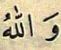 وَ اللّٰهُ